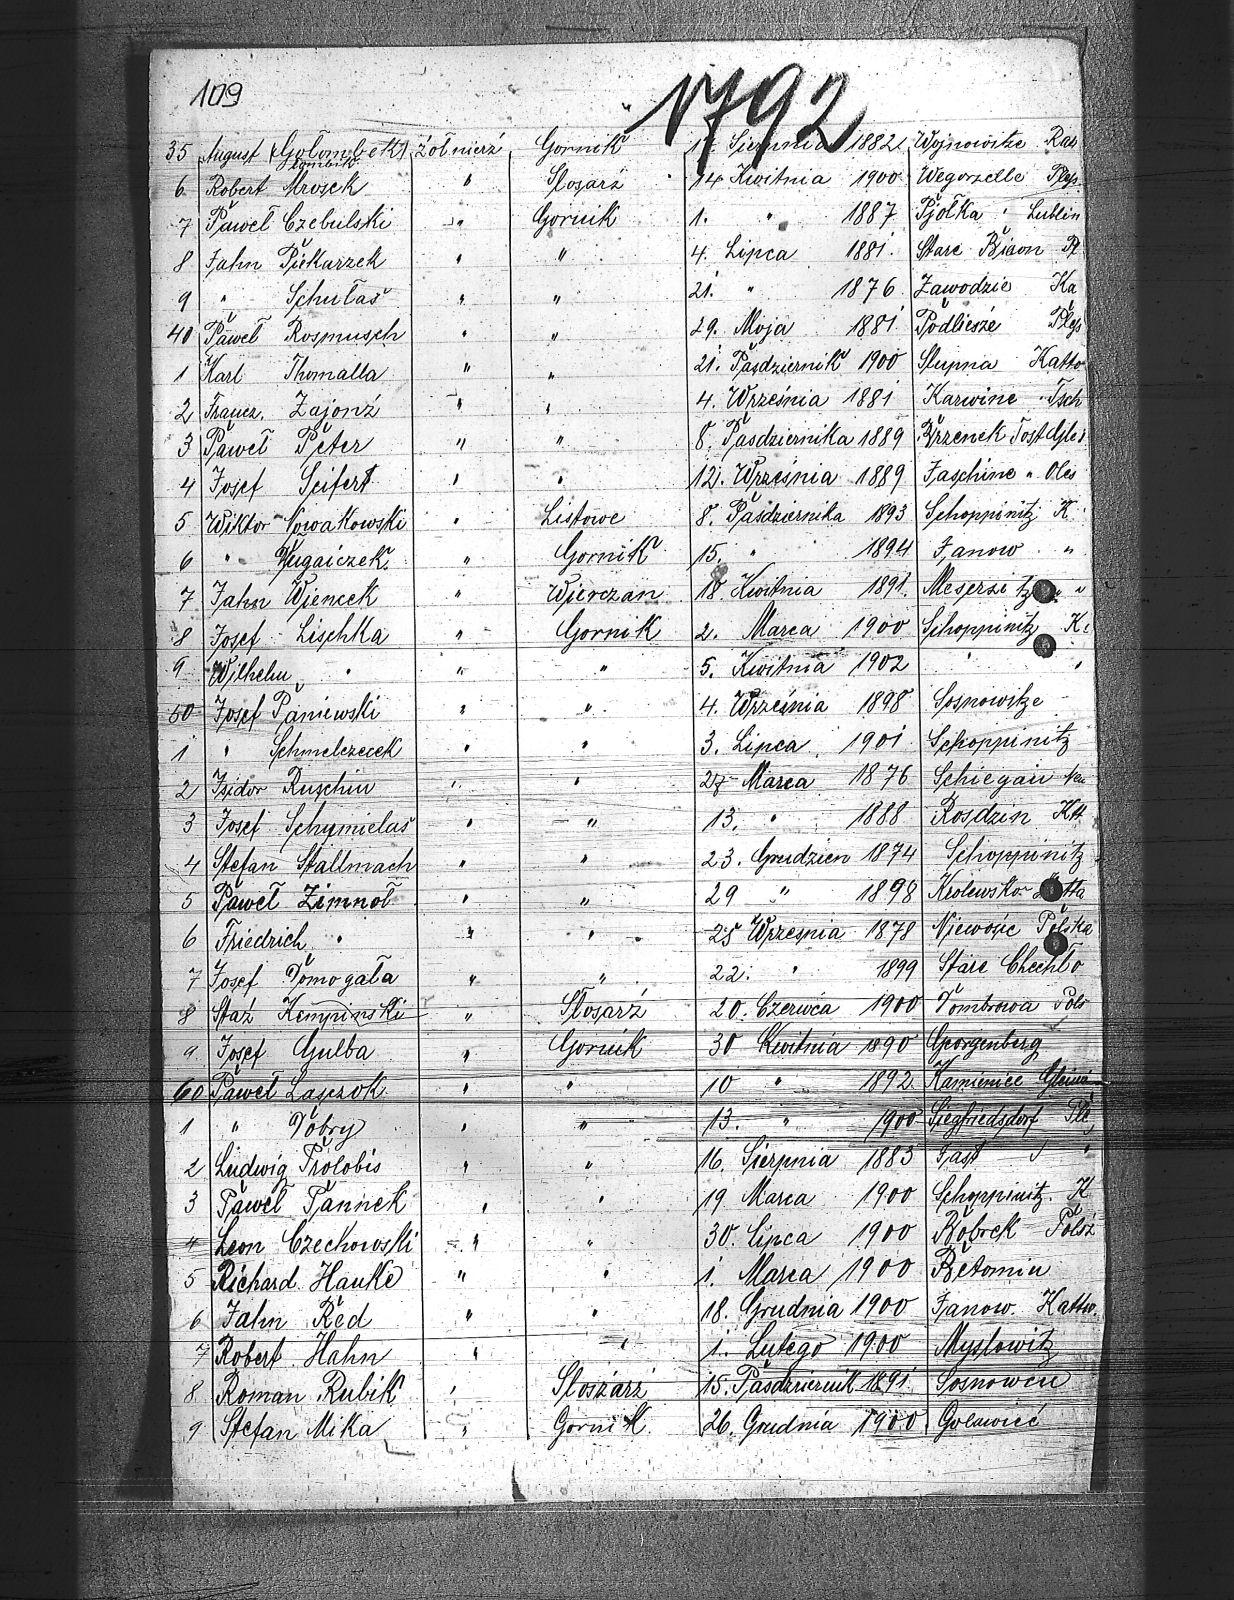 109
1792
35 August (Golombek) Żołnierź Gornik 1. Sierpnia 1882 Wojnowitze Rat
Lombik
6 Robert Mrosek " Slosarź 14 Kwitnia 1900 Wegorzelle Ples.
7 Paweł Czebulski " Gornik 1. " 1887 Pjotka " Lublin
8 Jahn Piekarzek " " 4. Lipca 1881. Stare Biaon Pl
9 " Schułas " " 21. " 1876 Zawodzie Ka
40 Paweł Rosmusch " " 29. Moja 1881 Podliesze Ples
1 Karl Thomalla " " 21. Pasdziernik 1900 Slupna Katto
2 Francz. Zajonź " " 4. Września 1881 Karwine " Tsch
3 Paweł Peter " " 8. Pasdziernika 1889 Brzenek Tost Glei
4 Josef Seifert " " 12. Września 1889 Jaschine " Oles
5 Wiktor Nowakowski " Listowe 8. Pasdziernika 1893 Schoppinitz K
6 " Bugaiczek " Gornik 15. " 1894 Janow "
7 Jahn Wiencek " Wierczan 18. Kwitnia 1891. Meserzitz " "
8 Josef Lischka " Gornik 2. Marca 1900 Schoppinitz K.
9 Wilhelm " " " 5. Kwitnia 1902 " "
50 Josef Paniewski " " 4. Wrzeinia 1898 Sosnowitze
1 " Schmelczecek " " 3. Lipca 1901 Schoppinitz
2 Isidor Ruschin " " 27 Marca 1876 Schiegau Neu
3 Josef Schymielas " " 13. " 1888 Rosdzin Katt
4 Stefan Stallmach " " 23. Grudzien 1874 Schoppinitz
5 Paweł Zimnoł " " 29 " 1898 Krolewsko
6 Friedrich " " " 25 Wrzesnia 1878 Niewosic Polska
7 Josef Domogała " " 22. " 1899 Stare Chechło
8 Staź Kempinski " Słosarź 20. Czerwca 1900 Dombrowa Pols
9. Josef Gulba " Gornik 30 Kwitnia 1890 Georgenberg
60 Paweł Laszok " " 10 " 1892 Kamieniec Gleiwi
1 " Dobry " " 13. " 1900 Siegfriedsdorf Ple
2 Ludwig Prolobis " " 16. Sierpnia 1883 Jast "
3 Paweł Pannek " " 19 Marca 1900 Schoppinitz. K
4 Leon Czechowski " " 30. Lipca 1900 Bobrek Polsz
5 Richard Hauke " " 1. Marca 1900 Betomin
6 Jahn Red " " 18. Grudnia 1900 Janow. Kattw.
7 Robert Hahn " " 1. Lutego 1900 Myslowitz
8 Roman Rubik " Sloszarź 15. Pasdziernik 1891 Sosnowcu
9 Stefan Mika " Gornik. 26. Grudnia 1900 Golawieć